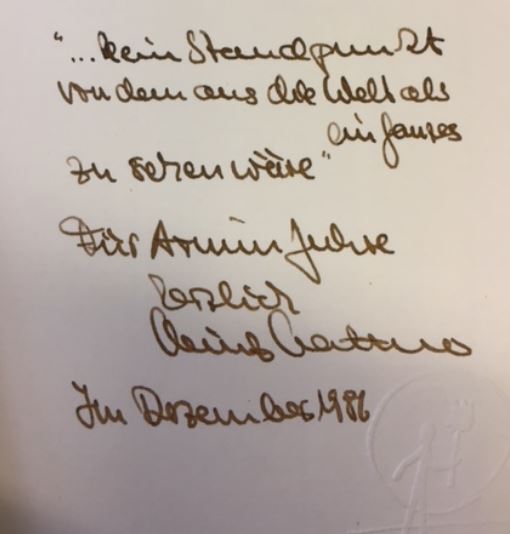 "...kein Standpunkt
von dem aus die Welt als
ein Ganzes
zu sehen wäre"
Für Armin Juhre
herzlich
Im Dezember 1986